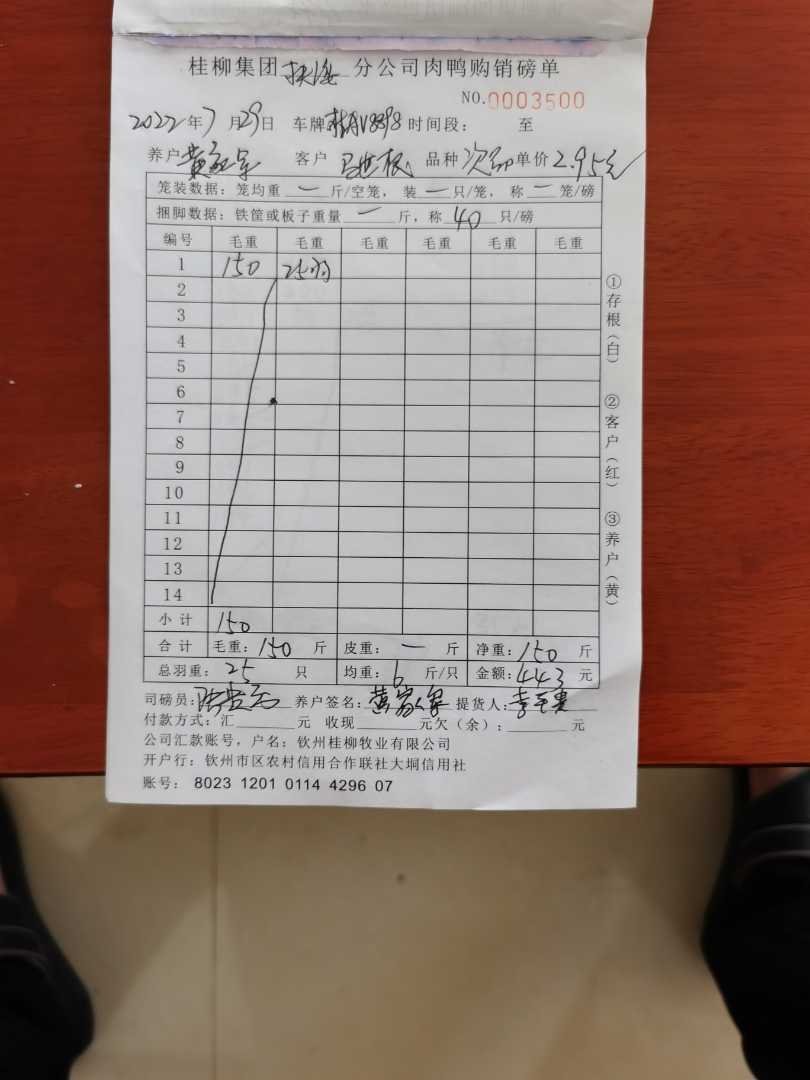 桂柳集团 分公司肉鸭购销磅单
NO.0003500
2022年7月29日 车牌 时间段： 至
养户 客户 品种 单价2.95元
笼装数据：笼均重 一 斤/空笼，装 一 只/笼，称 一 笼/磅
捆脚数据：铁筐或板子重量 一 斤，称 40 只/磅
编号 毛重 毛重 毛重 毛重 毛重 毛重
1 150 25羽
2
3
4
5
6
7
8
9
10
11
12
13
14
小计 150
合计 毛重：150 斤 皮重：一 斤 净重：150 斤
总羽重：25 只 均重：6 斤/只 金额：443 元
司磅员： 养户签名： 提货人：
付款方式：汇 元 收现 元欠（余）： 元
公司汇款账号，户名：钦州桂柳牧业有限公司
开户行：钦州市区农村信用合作联社大垌信用社
账号：8023 1201 0114 4296 07
①存根（白）
②客户（红）
③养户（黄）